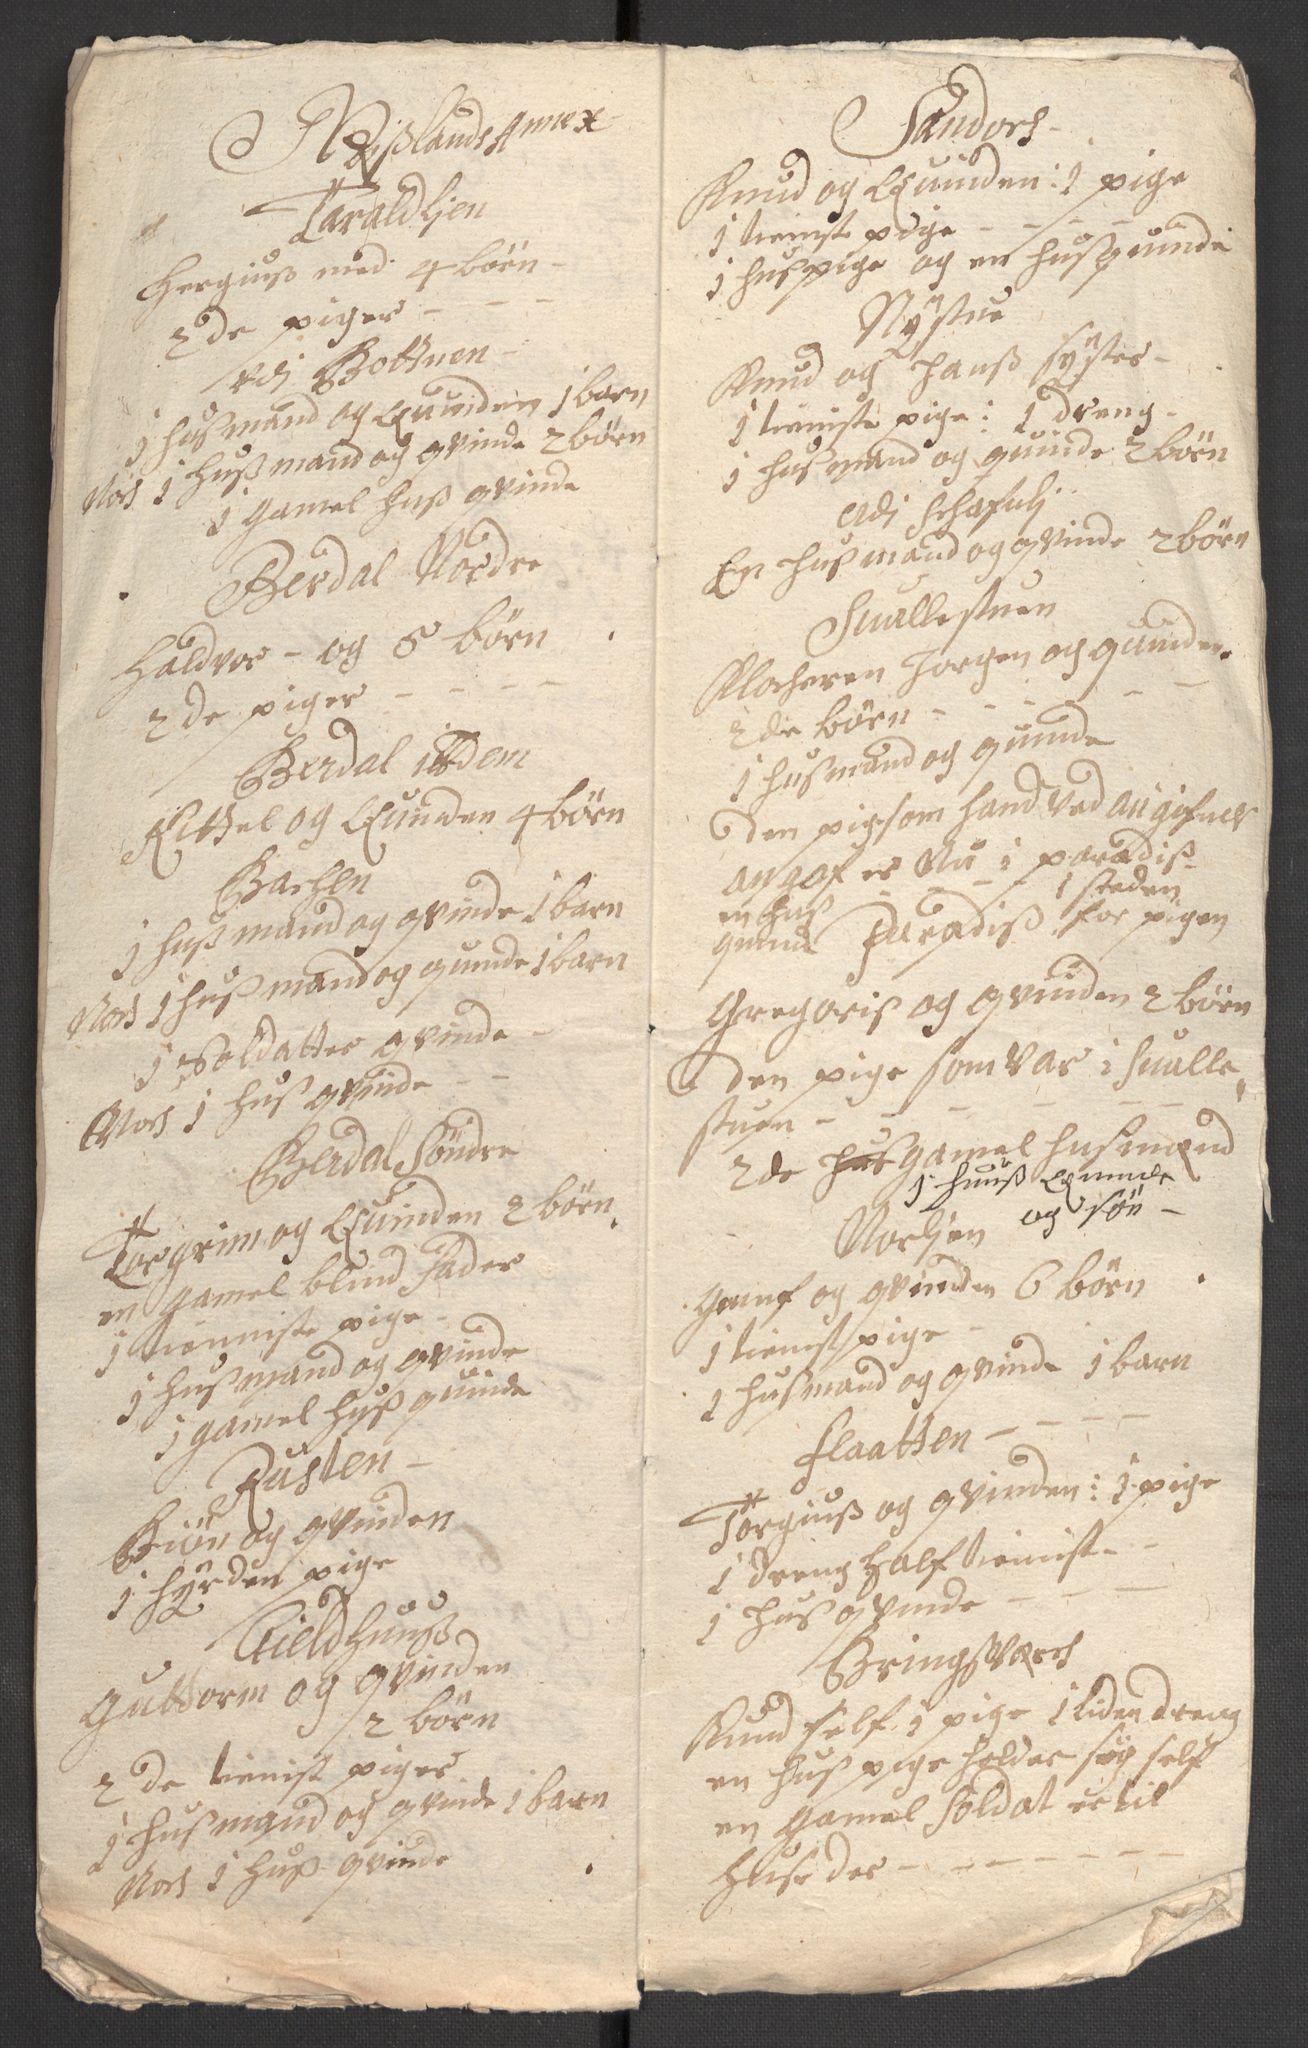 Nißlands Annex
Taraldlien
Hergiuß med 4 börn -
2 de piger - - -
udj Bottnen -
1 hußmand og Quinden 1 barn
Noch 1 hußmand og qvinde 2 börn
1 gamel huß qvinde
Berdal Nordre
Haldvor - og 5 börn
2 de piger - - - -
Berdal ibdem
Kittel og Quinden 4 börn
Bachen
1 hußmand og qvinde 1 barn
Noch 1 hußmand og quinde 1 barn
1 Soldatter qvinde -
Noch 1 huß qvinde - -
Berdal Söndre
Torgrim og Quinden 2 börn
en gamel blind fader
1 tienniste pige -
1 hußmand og qvinde
1 gamel huß quinde
Rusten -
Biön og qvinden
1 hyrden pige
Kieldhuuß
Guttorm og qvinden
2 börn
2 de tienist piger
1 hußmand og qvinde 1 barn
Noch 1 huß qvinde
Sandoch -
Knud og Quinden : 1 pige
1 tieniste pige - - - -
1 huß pige og en huß quinde
Nÿstue
Knud og hanß syster -
1 tieniste pige : 1 dreng -
1 hußmand og quinde 2 börn
udj
En hußmand og qvinde 2 börn
Suallestuen
Klocheren Jorgen och quinden
2 de börn - - - - - -
1 hußmand og quinde
den pige som hand ved angifuelß
angaf er Nu i paradiß
en huß quinde Paradiß i steden for pigen
Gregoris og qvinden 2 börn
den pige som var i Sualle
stuen - - - - -
2 de gamel husmænd
1 huuß Quinde
Norljen og sön -
Gunuf og qvinden 6 börn
1 tienist pige -
1 hußmand og qvinde 1 barn
Flaatten - - - -
Torgiuß og qvinden : 1 pige
1 dreng half tieniste -
1 huß qvinde - - -
Bringsværch
Knud self 1 pige 1 liden dreng
en huß pige holder sig self
en gamel soldat er til
huse der - - - - - - -